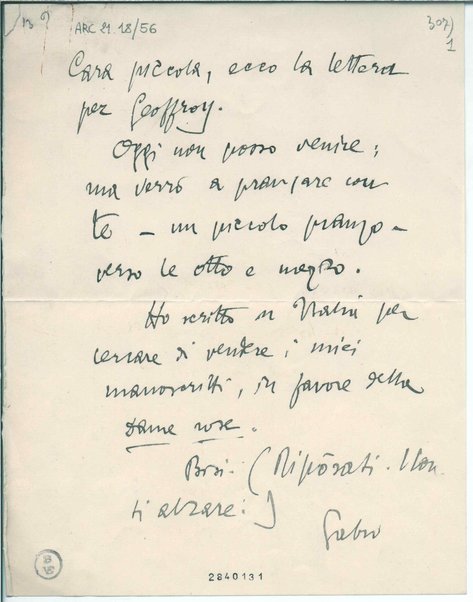 ARC 21.18/56
307)
1
Cara piccola, ecco la lettera
per Geoffroy.
Oggi non posso venire;
ma verrò a pranzare con
te – un piccolo pranzo –
verso le otto e mezzo.
Ho scritto in Italia per
cercare di vendere i miei
manoscritti, in favore della
Dame rose.
(Ripòsati. Non
ti alzare!)
Gabri
2840131